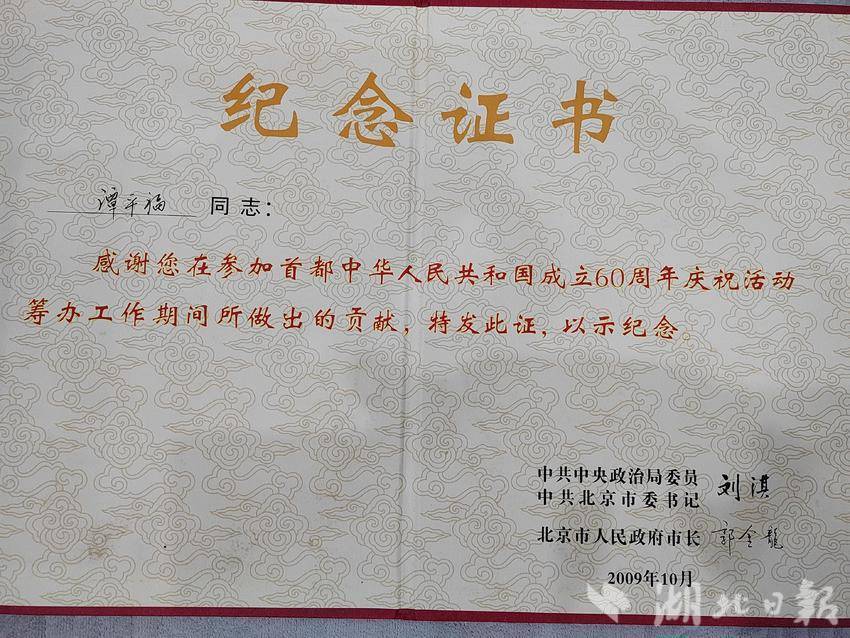 纪念证书
谭平福 同志：
感谢您在参加首都中华人民共和国成立60周年庆祝活动
筹办工作期间所做出的贡献，特发此证，以示纪念。
中共中央政治局委员
中共北京市委书记 刘淇
北京市人民政府市长 郭金龙
2009年10月
湖北日报